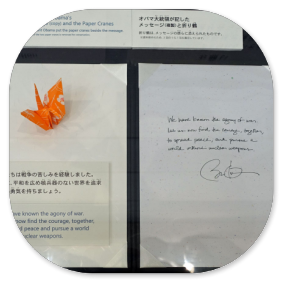 ma's
and the Paper Cranes
オバマ大統領が記した
メッセージ(複製)と折り鶴
We have known the agony of war.
Let us now find the courage, together,
to spread peace, and pursue a
world without nuclear weapons.
ちは戦争の苦しみを経験しました。
、平和を広め核兵器のない世界を追求
勇気を持ちましょう。
ve known the agony of war.
now find the courage, together,
d peace and pursue a world
clear weapons.